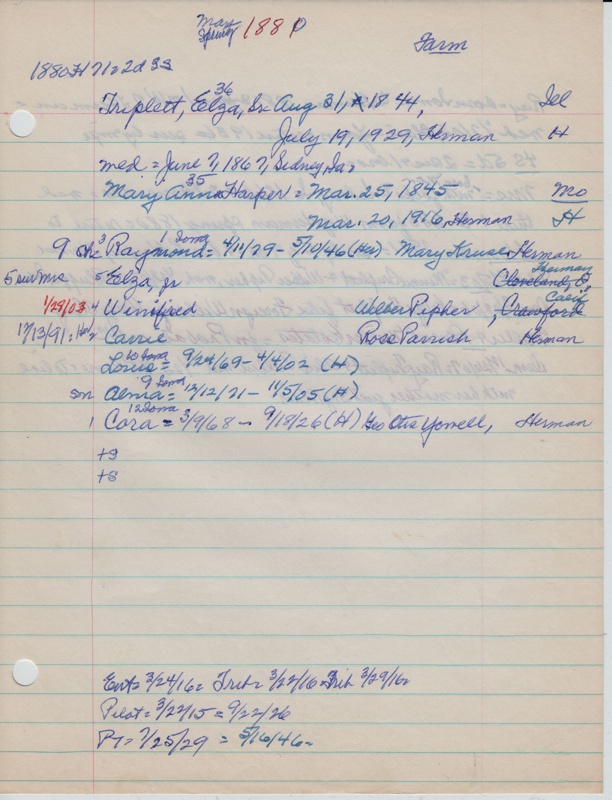 May Spring 1880
Farm
1880 H 71 = 2d 33
Triplett, Elza, Sr Aug 31, 1844, Ill
36
July 19, 1929, Herman H
med = June 7, 1867, Sidney, Ia =
Mary Anna Harper = Mar. 25, 1845 Mo
35
Mar. 20, 1916, Herman H
9 3 Raymond = 4/11/79 - 5/10/46 (H) Mary Kruse Herman
1 Ioma
5 Elza, jr Cleveland, O, Herman
1/29/03 4 Winifred Wilber Pipher, Crawford Calif
12/13/91 = 2 Carrie Ross Parrish Herman
Louis = 9/24/69 - 4/4/02 (H)
10 Ioma
son Alma = 12/12/71 - 11/5/05 (H)
9 Ioma
1 Cora = 3/9/68 - 9/18/26 (H) Geo Otis Yowell, Herman
12 Ioma
+9
+8
Ent = 3/24/16 = Trib = 3/22/16 = Trib 3/29/16 =
Pilot = 3/22/15 = 9/22/26
PT = 7/25/29 = 5/16/46 =